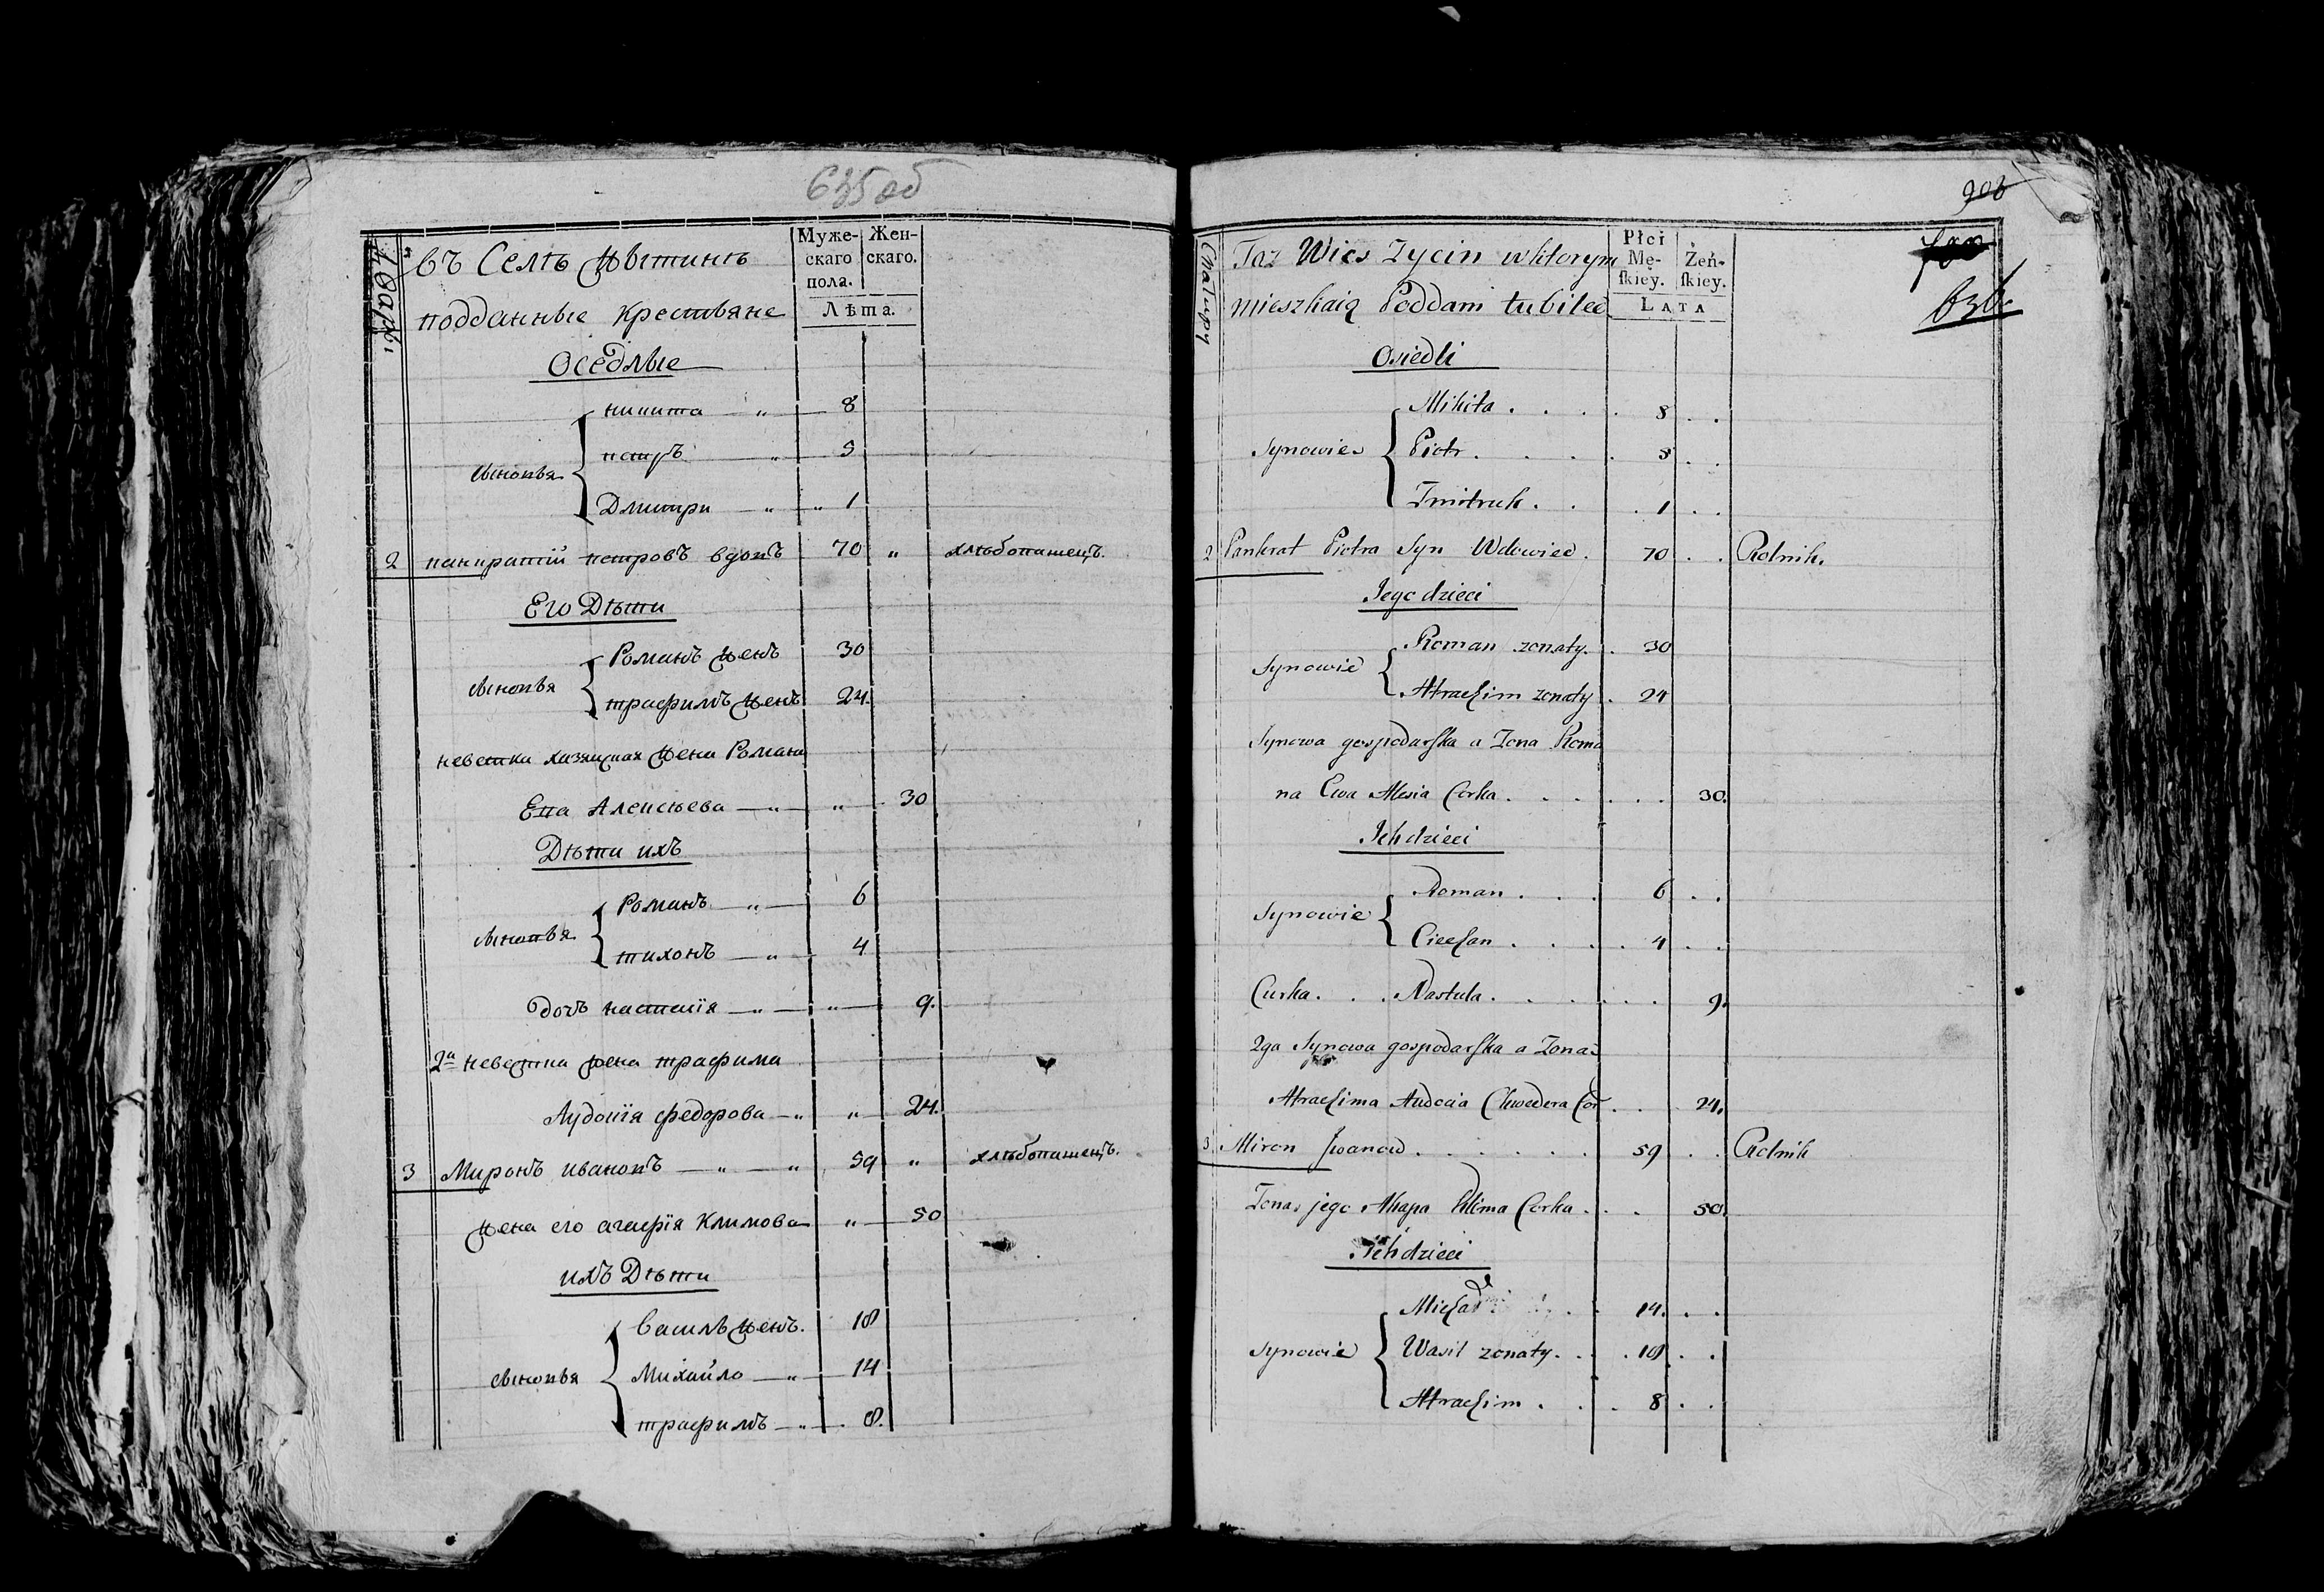 635 об
4 Двары
въ Селѣ Жытинѣ
подданные крестьяне
Муже-
скаго
пола.
Жен-
скаго.
Лѣта.
Оседлые
сыновья
никита — „ — 8
петръ „ 5
Дмитри — „ — „ 1
2 панкратій петровъ вдовъ 70 „ хлѣбопашецъ.
Его Дѣти
сыновья
Романъ женъ 30
трафимъ женъ 24.
невестка хазяцкая жена Романа
Ева Алексѣева — „ — „ 30
Дѣти ихъ
сыновья
Романъ — „ — 6
тихонъ — „ — 4
дочь настасія — „ — „ — 9.
2я невестка жена трафима
Аудокія федорова — „ „ 24.
3 Миронъ ивановъ — „ — „ 59 „ хлѣбопашецъ.
жена его агафія Климова „ 50
ихъ Дѣти
сыновья
Василь женъ. 18
Михайло — „ — 14
трафимъ — „ — 8.
906
636
Chałupy
Taż Wies Zycin w ktorym
mieszkaią Poddani tubilcé
Płci
Mę-
skiey.
Żeń-
skiey.
LATA
Osiedli
Synowie
Mikita . . . . 8 . .
Piotr . . . . 5 . .
Zmitruk . . . 1 . .
2 Pankrat Piotra Syn Wdowiec . 70 . . Rolnik.
Jego dzieci
Synowie
Roman zonaty . . 30
Atrachim zonaty . 24
Synowa gospodarska a Zona Roma
na Ewa Alesia Corka . . . . . . 30.
Ich dzieci
Synowie
Roman . . . 6 . .
Ciechan . . . . 4 . .
Curka . . . Nastula . . . . . . 9.
2ga Synowa gospodarska a Zona
Atrachima Audocia Chwedora Cor . . 24.
3 Miron Jwanow . . . . . . 59 . . Rolnik
Zona jego Ahapa Klima Corka . . . 50.
Ich dzieci
Synowie
14. . .
Wasil zonaty . . . 18 . .
Atrachim . . . 8 . .